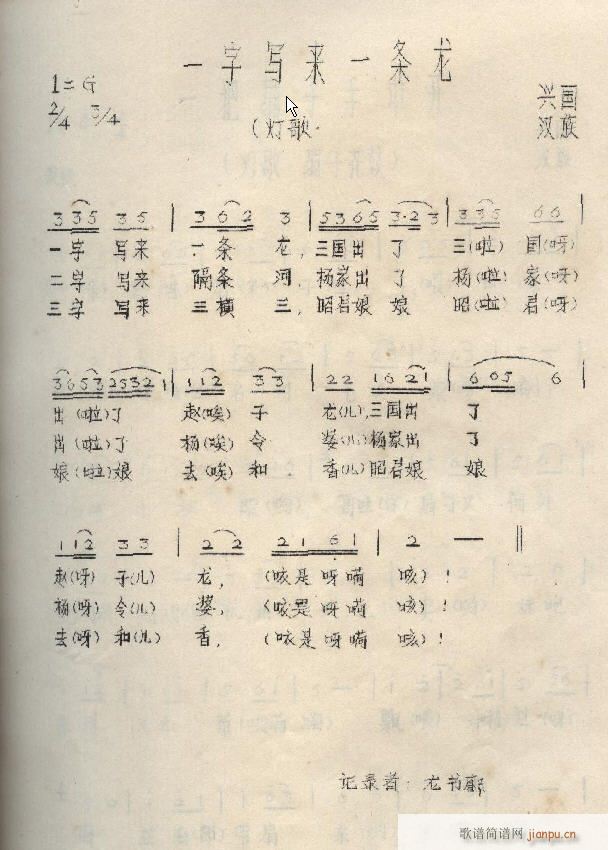 一字写来一条龙
1=G
2/4 3/4
兴国
汉族
(灯歌
3 35 35 | 3 62 3 | 5365 3·23 | 335 66 |
一字 写来 一条 龙, 三国出 了 三(啦) 国(呀)
二字 写来 隔条 河 杨家出 了 杨(啦) 家(呀)
三字 写来 三横 三, 昭君娘 娘 昭(啦) 君(呀)
3653 25321 | 112 33 | 22 1621 | 665 6 |
出(啦)了 赵(唉)子 龙(儿),三国出 了
出(啦)了 杨(唉)令 婆(儿)杨家出 了
娘(啦)娘 去(唉)和 香(儿)昭君娘 娘
112 33 | 2 2 2161 | 2 — ‖
赵(呀)子(儿) 龙, (咳是呀嗬 咳)!
杨(呀)令(儿) 婆, (咳是呀嗬 咳)!
去(呀)和(儿) 香, (咳是呀嗬 咳)!
记录者: 龙书
歌谱简谱网 jianpu.cn